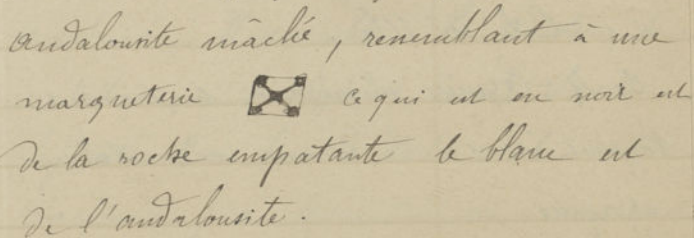 andalousite mâclé, ressemblant à une
marqueterie ce qui est en noir est
de la roche empatante le blanc est
de l'andalousite.